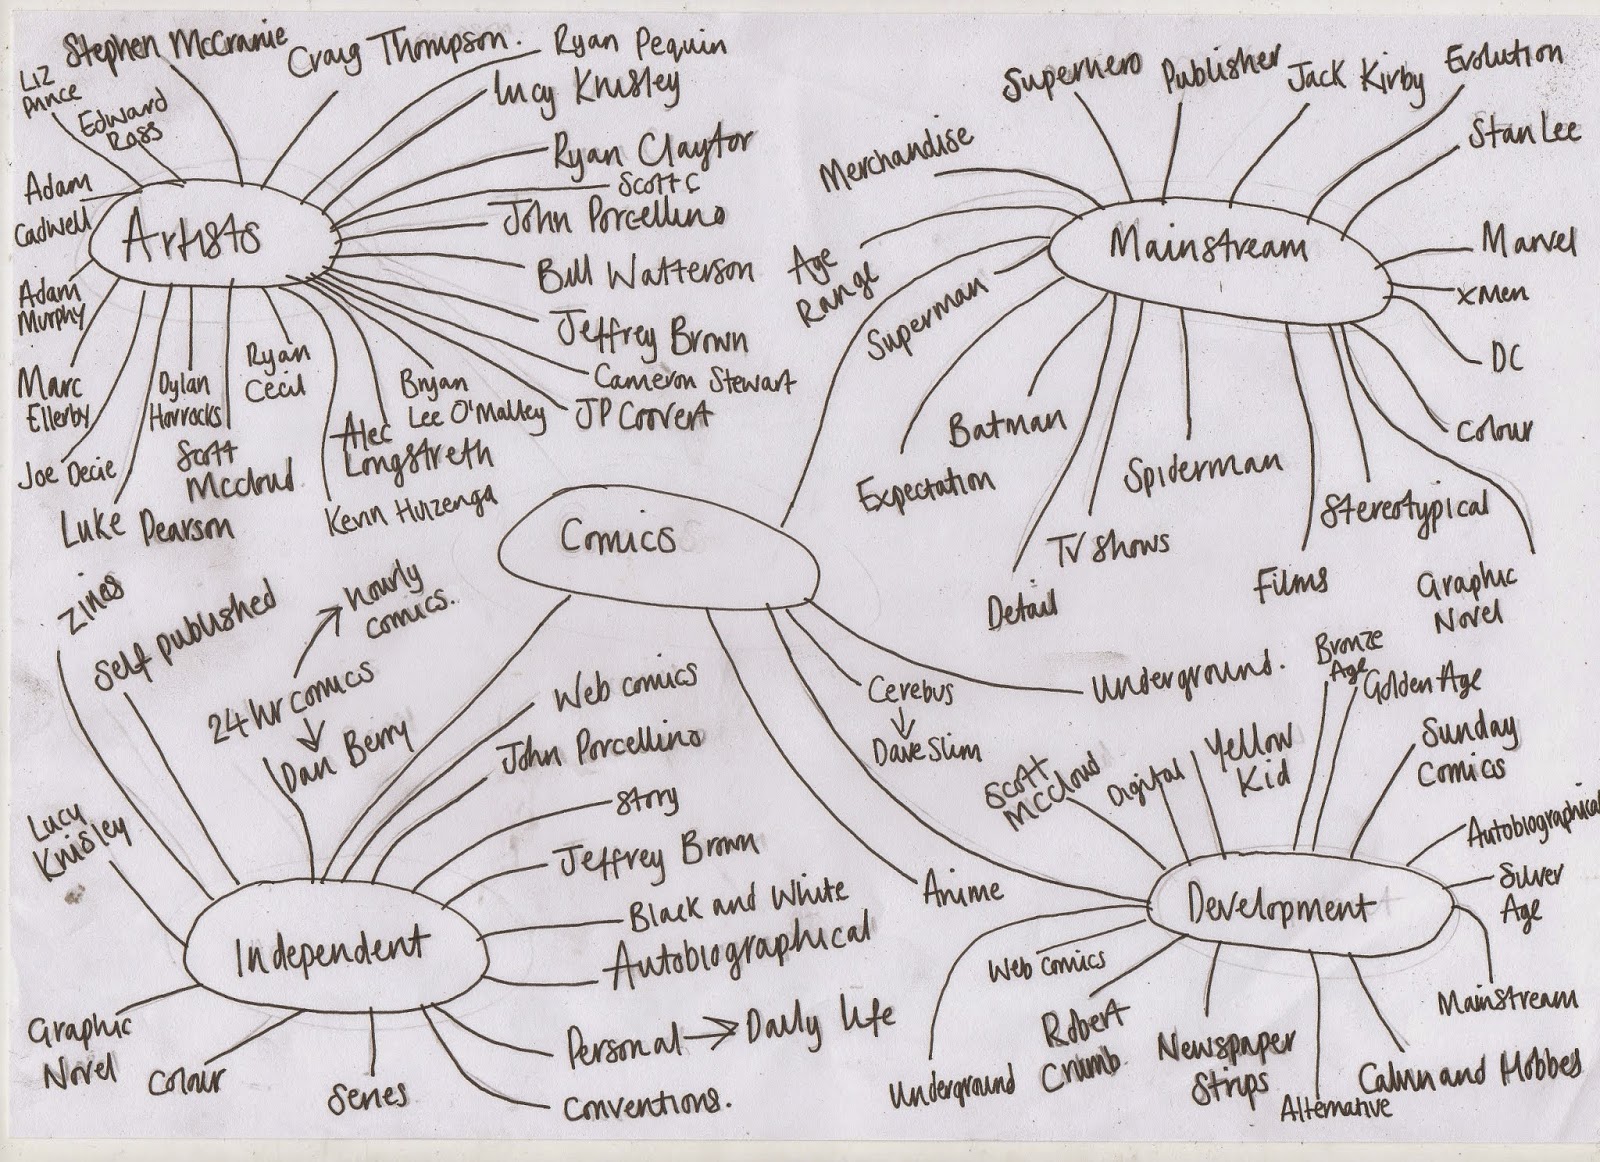 Stephen McCranie
Craig Thompson.
Ryan Pequin
Liz
Prince
Edward
Ross
Lucy Knisley
Ryan Claytor
Scott C
John Porcellino
Bill Watterson
Jeffrey Brown
Cameron Stewart
JP Coovert
Bryan
Lee O'Malley
Alec
Longstreth
Kevin Huizenga
Ryan
Cecil
Scott
McCloud
Dylan
Horrocks
Luke Pearson
Joe Decie
Marc
Ellerby
Adam
Murphy
Adam
Cadwell
Artists
Superhero
Publisher
Jack Kirby
Evolution
Stan Lee
Merchandise
Age
Range
Superman
Mainstream
Marvel
X Men
DC
Colour
Batman
Expectation
Spiderman
Stereotypical
TV Shows
Detail
Films
Graphic
Novel
Comics
Zines
Self published
hourly
comics.
24 hr comics
Dan Berry
Web comics
John Porcellino
Story
Jeffrey Brown
Lucy
Knisley
Black and White
Autobiographical
Independent
Personal → Daily life
Conventions.
Series
Colour
Graphic
Novel
Underground.
Cerebus
Dave Slim
Anime
Bronze
Age
Golden Age
Scott
McCloud
Digital
Yellow
Kid
Sunday
Comics
Autobiographical
Silver
Age
Development
Web comics
Underground
Robert
Crumb.
Newspaper
Strips
Alternative
Calvin and Hobbes
Mainstream